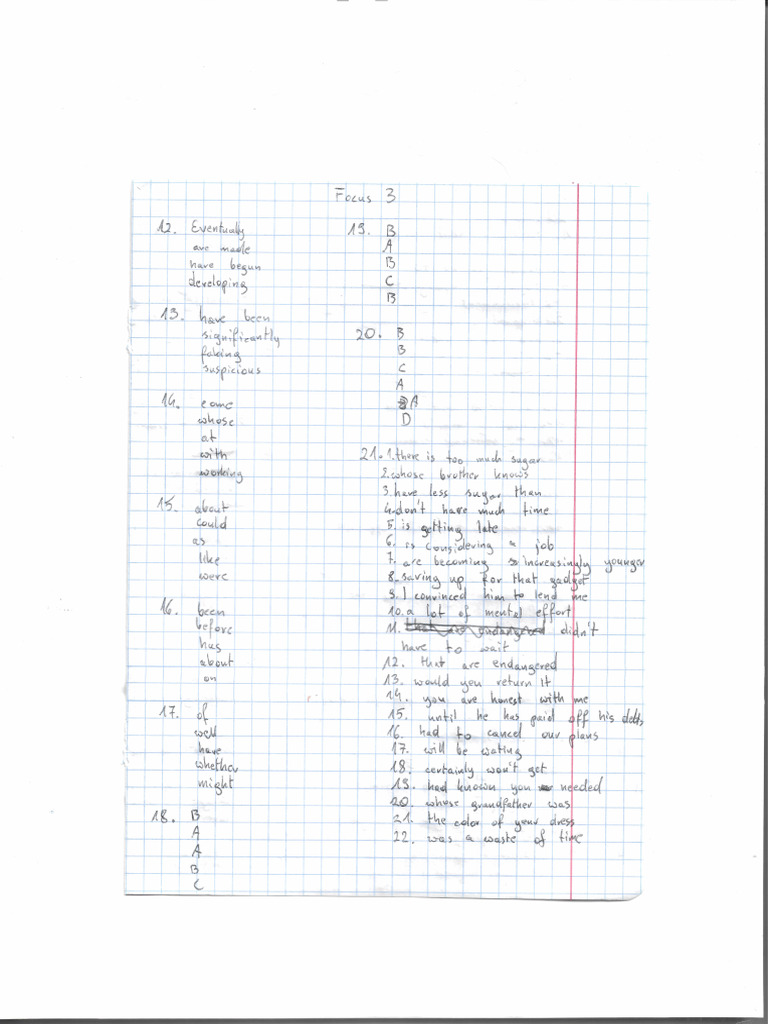 Focus 3
12. Eventually
are made
have begun
developing
13. have been
significantly
faking
suspicious
14. come
whose
at
with
working
15. about
could
as
like
were
16. been
before
has
about
on
17. of
well
have
whether
might
18. B
A
A
B
C
19. B
A
B
C
B
20. B
B
C
A
A
D
21. 1. there is too much sugar
2. whose brother knows
3. have less sugar than
4. don't have much time
5. is getting late
6. is considering a job
7. are becoming increasingly younger
8. saving up for that gadget
9. I convinced him to lend me
10. a lot of mental effort
11. that are endangered didn't
have to wait
12. that are endangered
13. would you return it
14. you are honest with me
15. until he has paid off his debts
16. had to cancel our plans
17. will be wating
18. certainly won't get
19. had known you needed
20. whose grandfather was
21. the color of your dress
22. was a waste of time